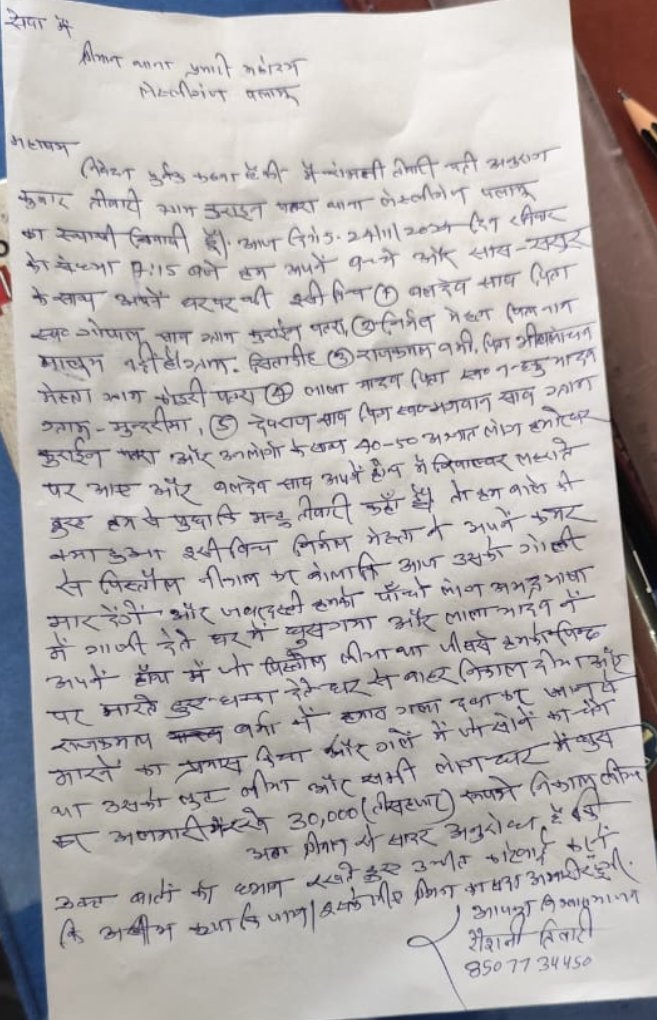 सेवा में
श्रीमान थाना प्रभारी महोदय
लेस्लीगंज पलामू
महाशय
निवेदन पुर्वक कहना है की मैं रोशनी तीवारी पती अनुराग
कुमार तीवारी ग्राम कुराईन पतरा थाना लेस्लीगंज पलामू
का स्थायी निवासी हूँ। आज दिनांक 24/11/2024 दिन रविवार
को संध्या 7:15 बजे हम अपने बच्चे और सास-ससुर
के साथ अपने घर पर थी इसी बिच ① बलदेव साव पिता
स्व० गोपाल साव ग्राम कुराईन पतरा, ② निर्मल मेहता पिता नाम
मालूम नहीं है ग्राम- ③ राजकमल वर्मा, पिता
मेहता ग्राम पतरा ④ लाला यादव पिता स्व० नन्हकु यादव
ग्राम- मुन्दरीया, ⑤ देवराज साव पिता स्व० भगवान साव ग्राम
कुराईन पतरा और उनलोगो के साथ 40-50 अज्ञात लोग हमारे घर
पर आए और बलदेव साव अपने हाँथ में रिवाल्वर लहराते
हुए हम से पुछा कि मन्टु तीवारी कहाँ है। तो हम बोले की
क्या हुआ इसी बिच निर्मल मेहता ने अपने कमर
से पिस्तौल नीकाल कर बोला कि आज उसको गोली
मार देंगें और जबरदस्ती हमको पाँचो लोग अभद्र भाषा
में गाली देते घर में घुस गया और लाला यादव ने
अपने हाँथ में जो पिस्तौल लीया था पीछे से हमको
पर मारते हुए धक्का देते घर से बाहर निकाल दीया और
राजकमल वर्मा ने हमारा गला दबा कर जान से
मारने का प्रयास किया और गले में जो सोने का चैन
था उसको लुट लीया और सभी लोग घर में घुस
कर अलमारी में रखे 30,000 (तीस हजार) रूपये निकाल लीया
अतः श्रीमान से सादर अनुरोध है की
उक्त बातों को ध्यान रखते हुए उचीत कारवाई करने
कि असीम कृपा कि जाय। इसके लीए श्रीमान का सदा आभारी रहूँगी।
आपका विश्वासभाजन
रौशनी तिवारी
8507734450